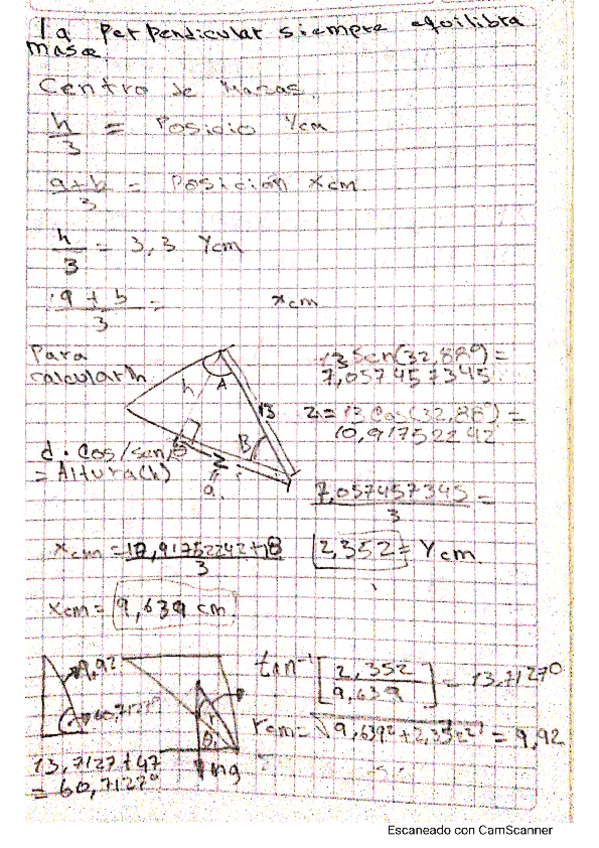 la Perpendicular siempre equilibra
masa.
Centro de Masas.
h/3 = Posicio Ycm
a+b/3 = Posición xcm.
h/3 = 3,3 Ycm
a + b/3 = xcm
Para
calcular h
h
A
13
B
a.
d. cos/sen,B
= Altura(h)
13 Sen(32,88°) =
7,057457345
z = 13 cos(32,88°) =
10,91752242
7,057457345/3 =
xcm = 10,91752242+18/3
2,352 = Ycm.
xcm = 9,639 cm
9,92
60,7127°
r
θ
mg
13,7127+47
= 60,7127°
tan⁻¹[2,352/9,639] = 13,7127°
rcm = √9,639²+2,352² = 9,92
Escaneado con CamScanner